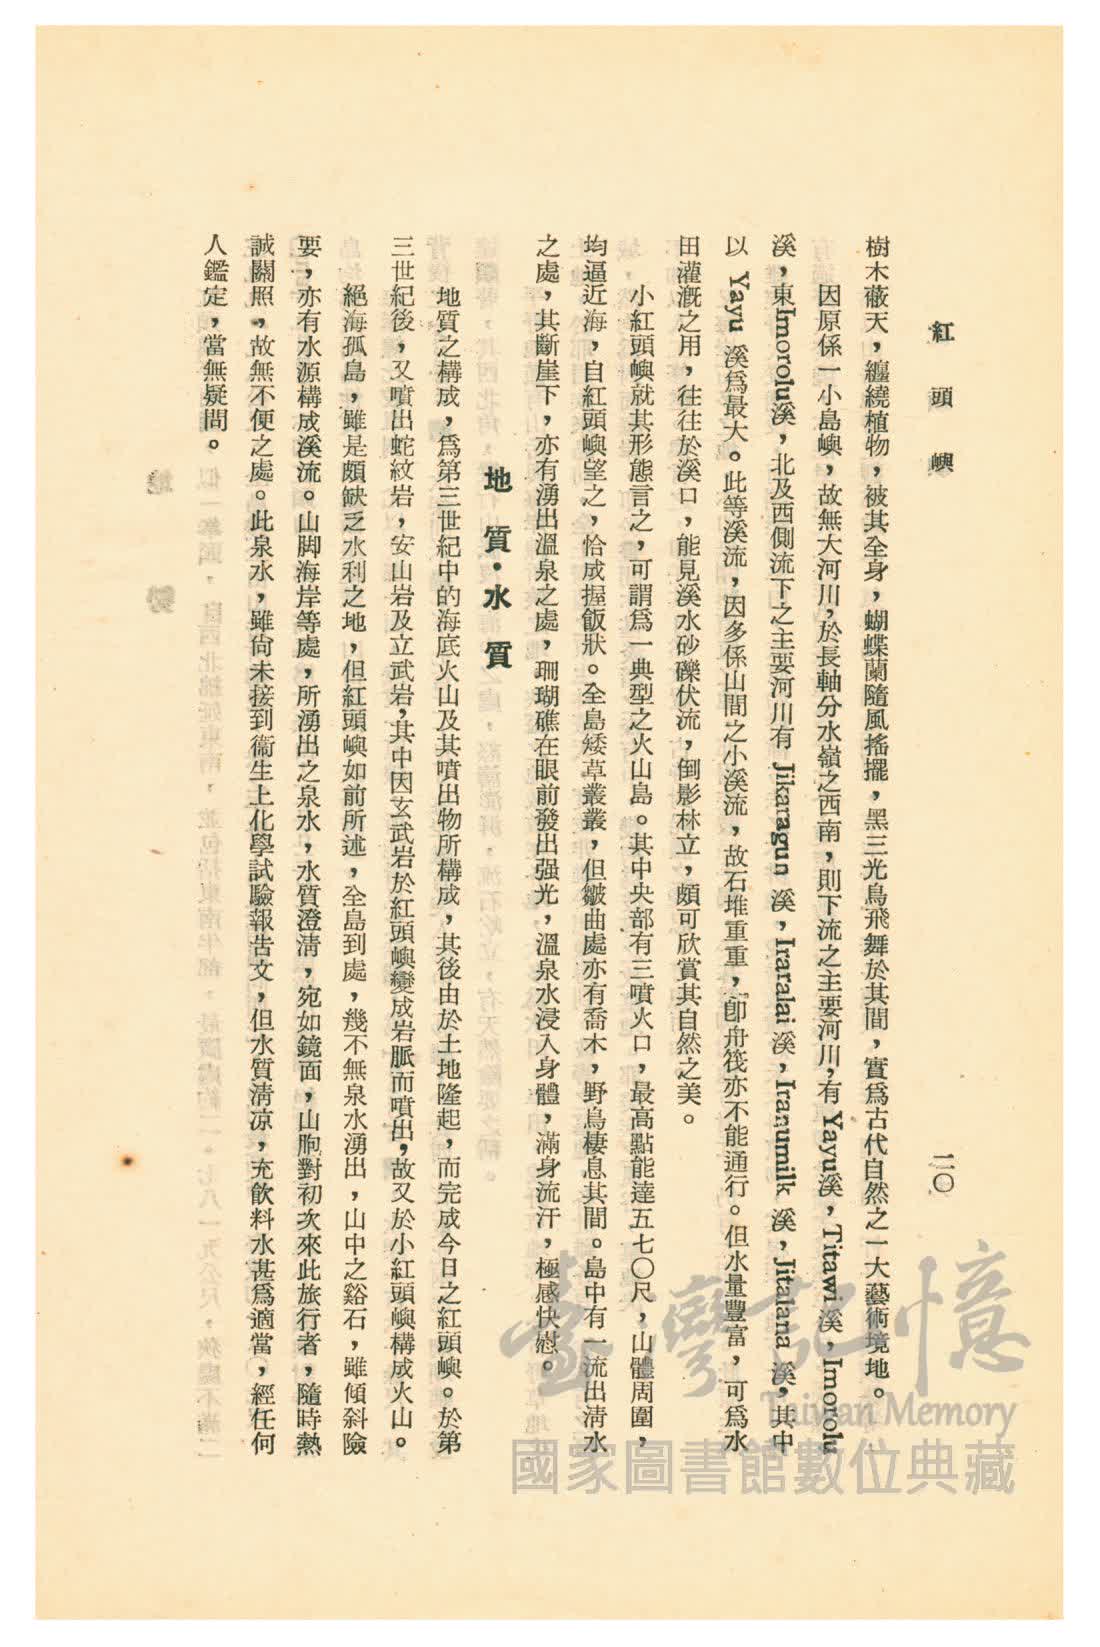 紅頭嶼 二〇
樹木蔽天，纏繞植物，被其全身，蝴蝶蘭隨風搖擺，黑三光鳥飛舞於其間，實爲古代自然之一大藝術境地。
因原係一小島嶼，故無大河川，於長軸分水嶺之西南，則下流之主要河川，有 Yayu溪，Titawi溪，Imorolu
溪，東Imorolu溪，北及西側流下之主要河川有 Jikaragun 溪，Iraralai溪，Iranumilk 溪，Jitalana 溪，其中
以 Yayu 溪爲最大。此等溪流，因多係山間之小溪流，故石堆重重，卽舟筏亦不能通行。但水量豐富，可爲水
田灌漑之用，往往於溪口，能見溪水砂礫伏流，倒影林立，頗可欣賞其自然之美。
小紅頭嶼就其形態言之，可謂爲一典型之火山島。其中央部有三噴火口，最高點能達五七〇尺，山體周圍，
均逼近海，自紅頭嶼望之，恰成握飯狀。全島矮草叢叢，但皺曲處亦有喬木，野鳥棲息其間。島中有一流出淸水
之處，其斷崖下，亦有湧出溫泉之處，珊瑚礁在眼前發出强光，溫泉水浸入身體，滿身流汗，極感快慰。
地質·水質
地質之構成，爲第三世紀中的海底火山及其噴出物所構成，其後由於土地隆起，而完成今日之紅頭嶼。於第
三世紀後，又噴出蛇紋岩，安山岩及立武岩，其中因玄武岩於紅頭嶼變成岩脈而噴出，故又於小紅頭嶼構成火山。
絕海孤島，雖是頗缺乏水利之地，但紅頭嶼如前所述，全島到處，幾不無泉水湧出，山中之谿石，雖傾斜險
要，亦有水源構成溪流。山脚海岸等處，所湧出之泉水，水質澄清，宛如鏡面，山胞對初次來此旅行者，隨時熱
誠關照，故無不便之處。此泉水，雖尙未接到衞生上化學試驗報告文，但水質淸凉，充飮料水甚爲適當，經任何
人鑑定，當無疑問。
臺灣記憶
Taiwan Memory
國家圖書館數位典藏